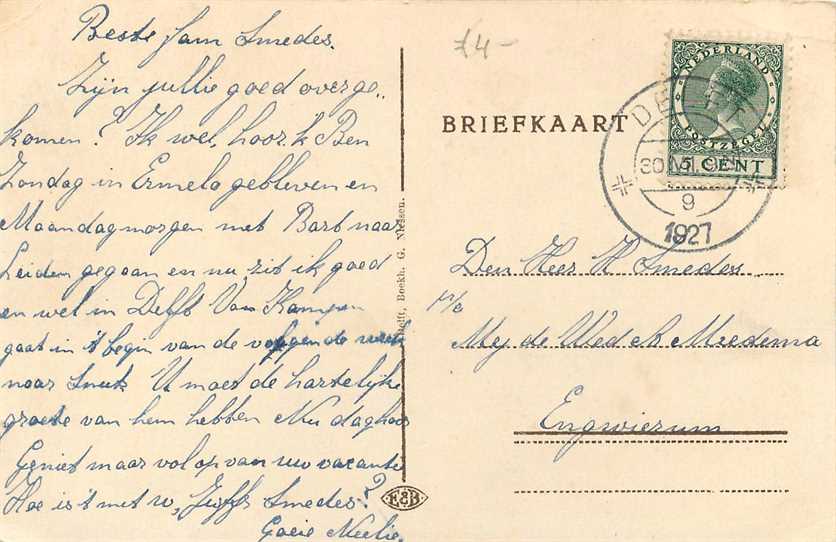 Beste fam Smedes.
Zijn jullie goed overge..
komen? Ik wel, hoor. k Ben
Zondag in Ermelo gebleven en
Maandagmorgen met Bart naar
Leiden gegaan en nu zit ik goed
en wel in Delft Van Kampen
gaat in 't begin van de volgende week
naar Sneek U moet de hartelijke
groete van hem hebben Nu dag hoor
Geniet maar volop van uw vacantie
Hoe is 't met u, Juffr Smedes?
Goeie Neelie.
Delft, Boekh. G. Niessen.
F&B
£4-
BRIEFKAART
NEDERLAND
POSTZEGEL
5 CENT
DELFT
30 VII. 9
9
1927
Den Heer H Smedes
p/a
Mej de Wed K Meedema
Engwierum